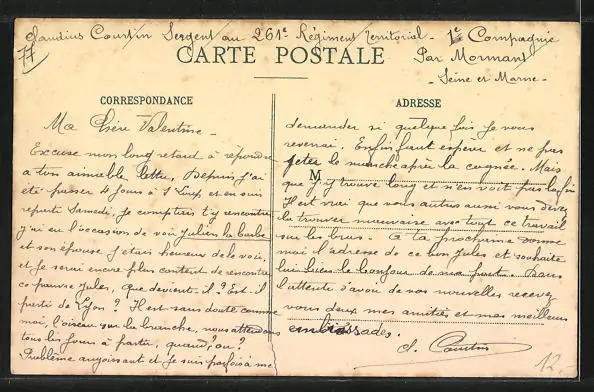 Claudius Courtin Sergent au 261e Régiment territorial - 1e Compagnie
77
CARTE POSTALE
Par Mormant
- Seine et Marne -
CORRESPONDANCE
Ma Valentine -
Excuse mon long retard à répondre
à ton aimable lettre. Depuis, j'ai
été passer 4 jours à et en suis
reparti Samedi. Je comptais t'y rencontrer
j'ai eu l'occasion de voir Julien la barbe
et son épouse j'étais heureux de le voir,
et je serai encore plus content de rencontrer
ce pauvre Jules, que devient-il ? Est-il
parti de Lyon ? Il est sans doute comme
moi, l'oiseau sur la branche, nous attendons
tous les jours à partir, quand, où ?
Problème angoissant et je suis parfois à me
ADRESSE
demander si quelque fois je vous
reverrai. Enfin faut espérer et ne pas
jeter le manche après la cognée. Mais
M
que j'y trouve long et n'en voit pas la fin
Il est vrai que vous autres aussi vous devez
la trouver mauvaise avec tout ce travail
sur les bras. À ta prochaine donne
moi l'adresse de ce bon Jules et souhaite
lui bien le bonjour de ma part. Dans
l'attente d'avoir de vos nouvelles recevez
vous deux mes amitiés et mes meilleurs
embrassades.
Cl. Courtin
12.